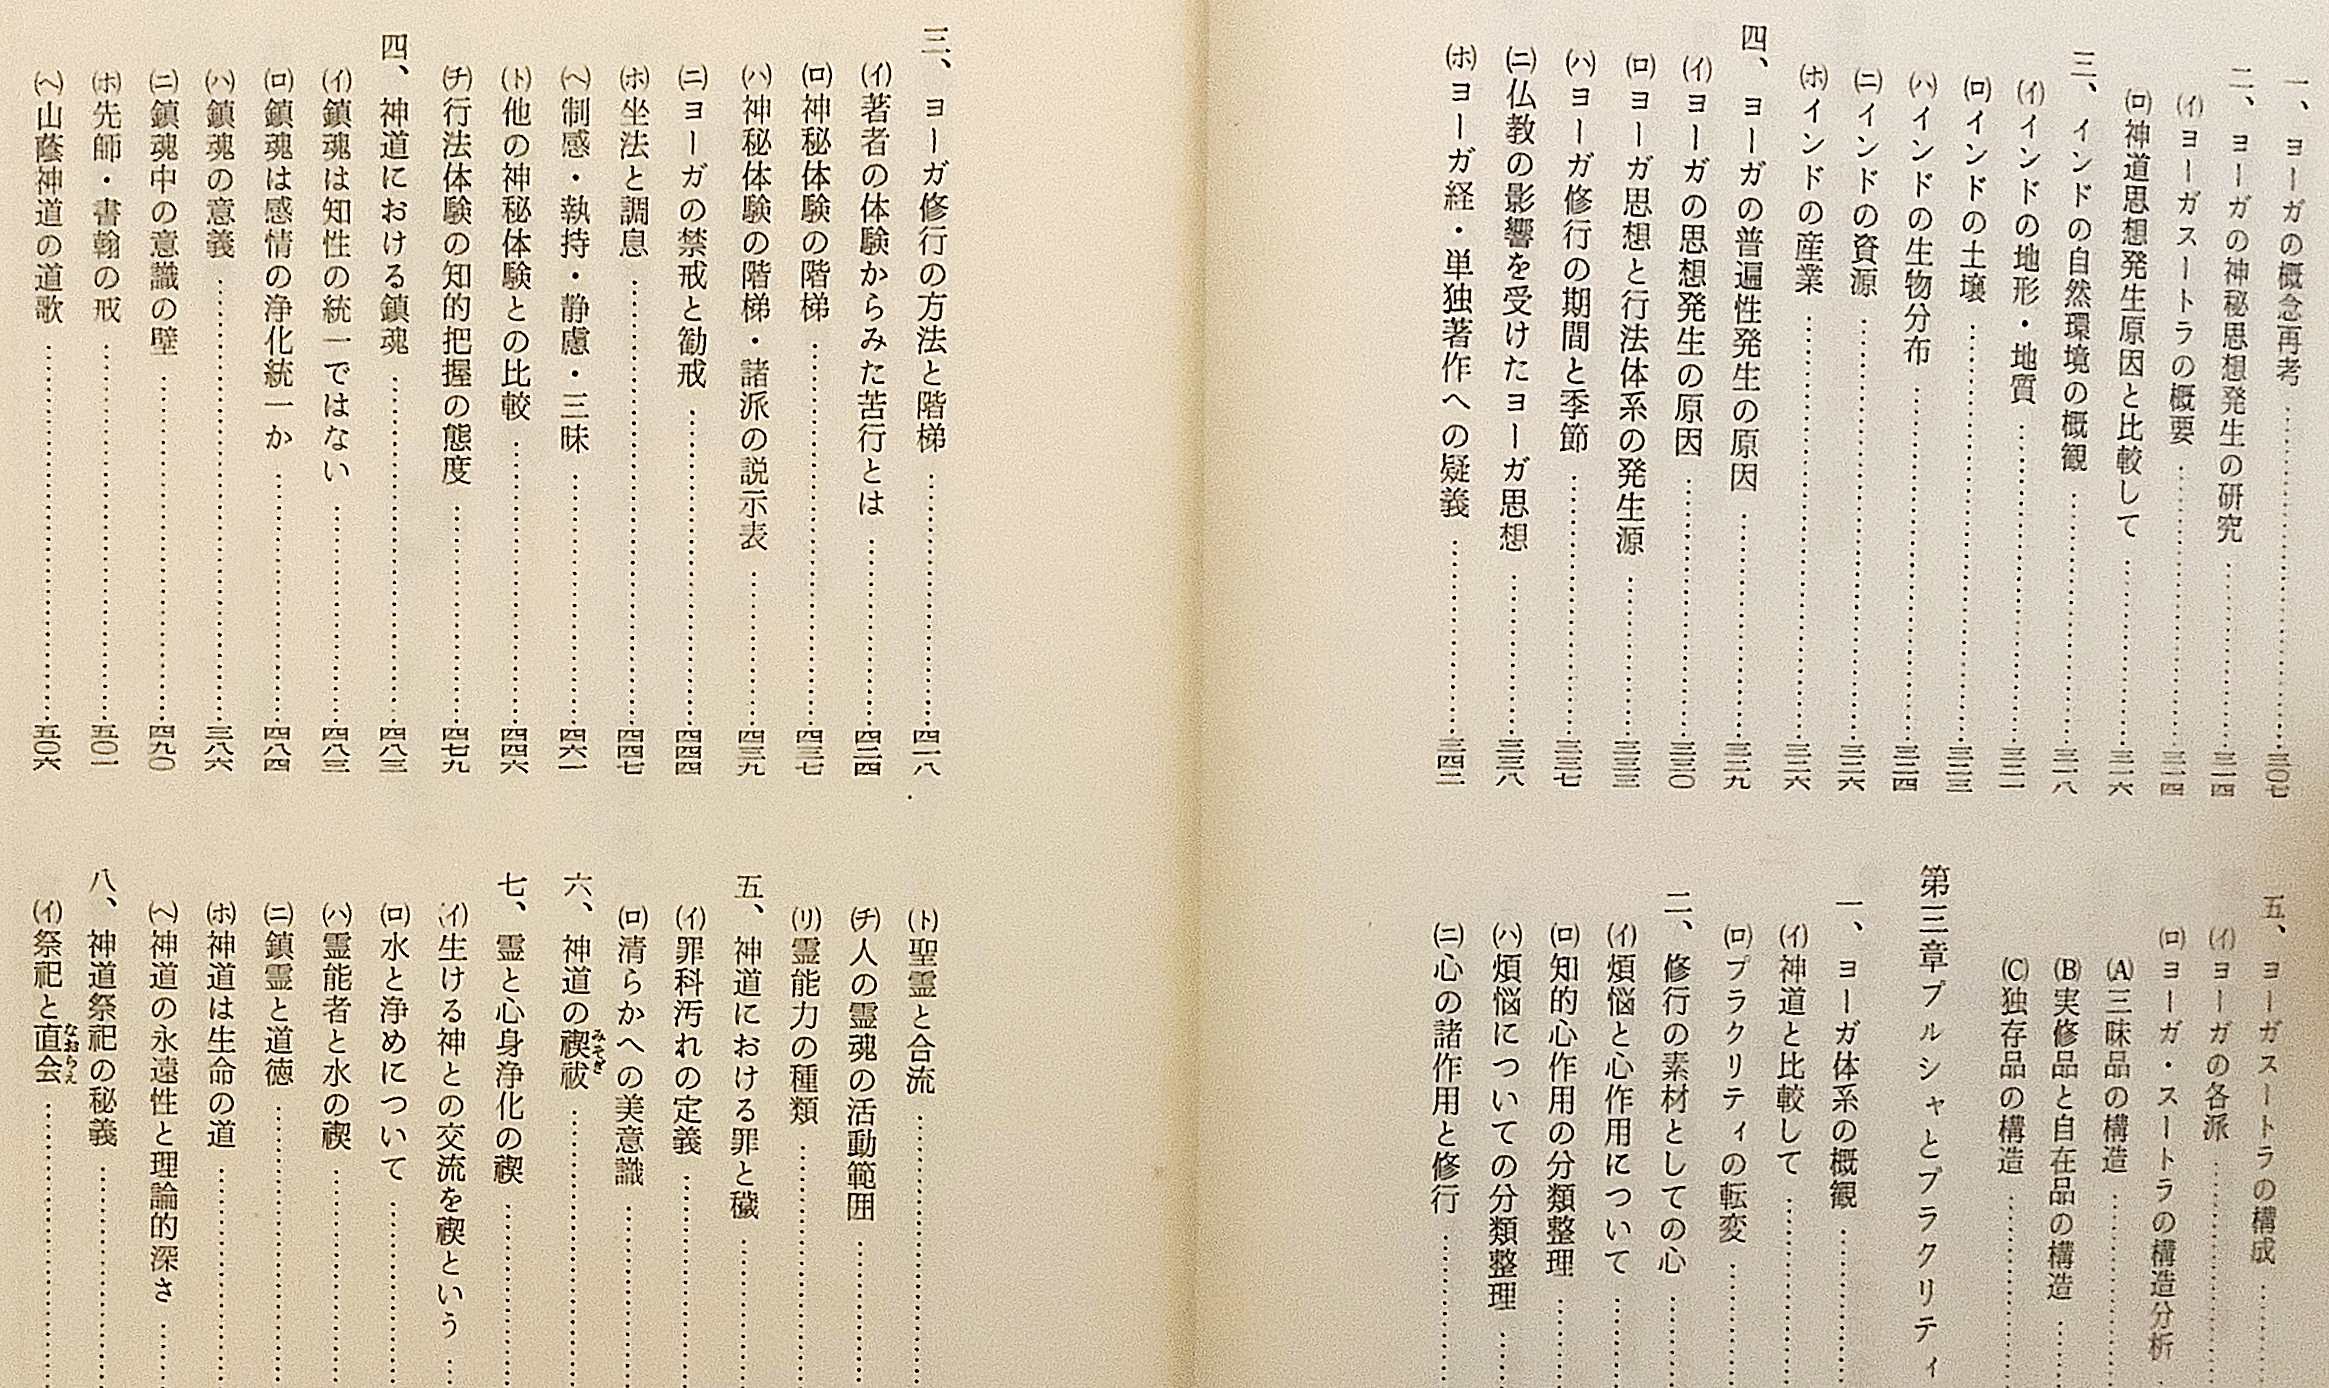 一、ヨーガの概念再考……三〇七
二、ヨーガの神秘思想発生の研究……三一四
(イ)ヨーガスートラの概要……三一四
(ロ)神道思想発生原因と比較して……三一六
三、インドの自然環境の概観……三一八
(イ)インドの地形・地質……三二一
(ロ)インドの土壌……三二三
(ハ)インドの生物分布……三二四
(ニ)インドの資源……三二六
(ホ)インドの産業……三二六
四、ヨーガの普遍性発生の原因……三二九
(イ)ヨーガの思想発生の原因……三三〇
(ロ)ヨーガ思想と行法体系の発生源……三三三
(ハ)ヨーガ修行の期間と季節……三三七
(ニ)仏教の影響を受けたヨーガ思想……三三八
(ホ)ヨーガ経・単独著作への疑義……三四二
五、ヨーガスートラの構成……
(イ)ヨーガの各派……
(ロ)ヨーガ・スートラの構造分析
(A)三昧品の構造……
(B)実修品と自在品の構造……
(C)独存品の構造……
第三章プルシャとプラクリティ
一、ヨーガ体系の概観……
(イ)神道と比較して……
(ロ)プラクリティの転変……
二、修行の素材としての心……
(イ)煩悩と心作用について……
(ロ)知的心作用の分類整理……
(ハ)煩悩についての分類整理……
(ニ)心の諸作用と修行……
三、ヨーガ修行の方法と階梯……四一八
(イ)著者の体験からみた苦行とは……四二四
(ロ)神秘体験の階梯……四三七
(ハ)神秘体験の階梯・諸派の説示表……四三九
(ニ)ヨーガの禁戒と勧戒……四四四
(ホ)坐法と調息……四四七
(ヘ)制感・執持・静慮・三昧……四六一
(ト)他の神秘体験との比較……四四六
(チ)行法体験の知的把握の態度……四七九
四、神道における鎮魂……四八三
(イ)鎮魂は知性の統一ではない……四八三
(ロ)鎮魂は感情の浄化統一か……四八四
(ハ)鎮魂の意義……三八六
(ニ)鎮魂中の意識の壁……四九〇
(ホ)先師・書翰の戒……五〇一
(ヘ)山蔭神道の道歌……五〇六
(ト)聖霊と合流……
(チ)人の霊魂の活動範囲……
(リ)霊能力の種類……
五、神道における罪と穢……
(イ)罪科汚れの定義……
(ロ)清らかへの美意識……
六、神道の禊祓みそぎ……
七、霊と心身浄化の禊……
(イ)生ける神との交流を禊という……
(ロ)水と浄めについて……
(ハ)霊能者と水の禊……
(ニ)鎮霊と道徳……
(ホ)神道は生命の道……
(ヘ)神道の永遠性と理論的深さ……
八、神道祭祀の秘義……
(イ)祭祀と直会なおらえ……